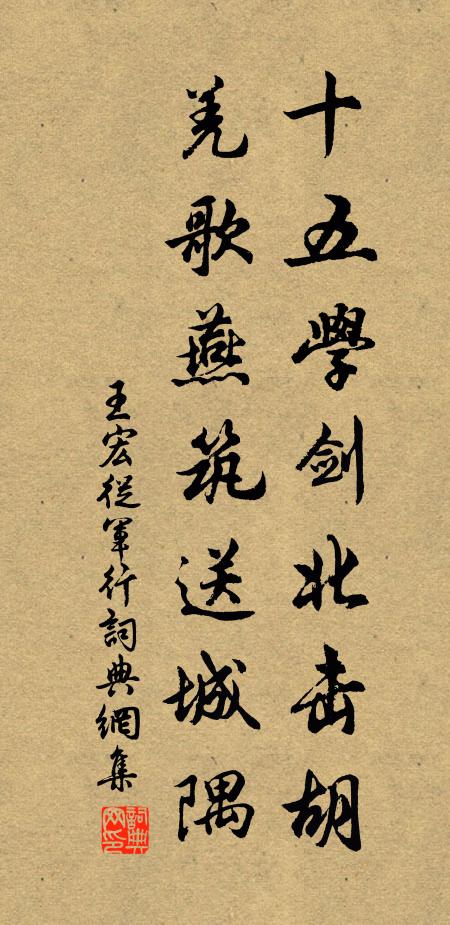 十五學劍北击胡
羌歌燕筑送城隅
王宏從軍行詞典網集
詞典网印